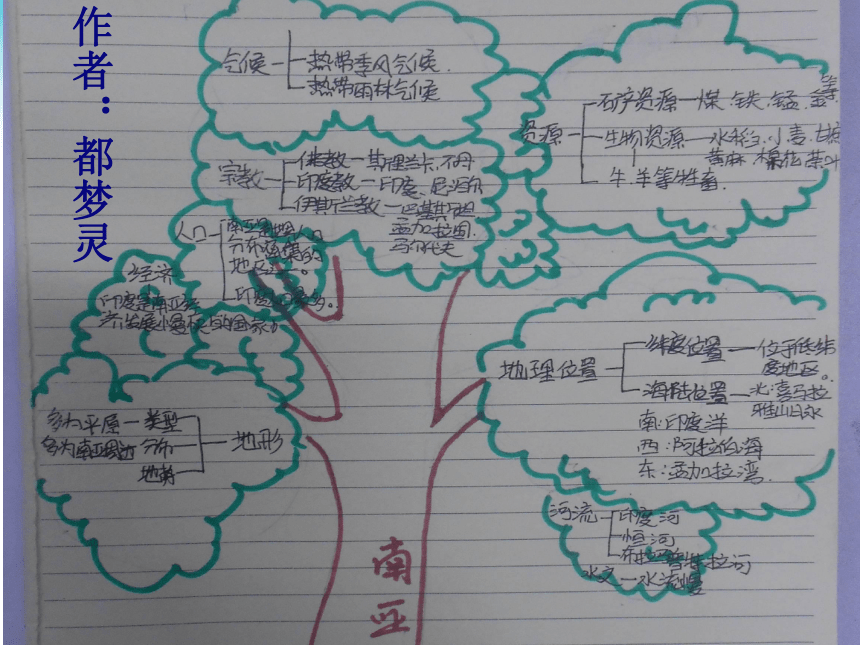 作者：都梦灵
气候
热带季风气候
热带雨林气候
宗教
佛教一斯里兰卡、不丹
印度教一印度、尼泊尔
伊斯兰教一巴基斯坦
孟加拉国
马尔代夫
资源
矿产资源一煤、铁、锰、金等
生物资源一水稻、小麦、
黄麻、棉花、茶叶
牛、羊等牲畜
人口
分布
地区
经济
印度是南亚经
济发展
的国家
多为平屋一类型
多为南亚周边 分布
地势
地形
地理位置
纬度位置一位于低纬
度地区。
海陆位置一北:喜马拉
雅山脉
南:印度洋
西:阿拉伯海
东:孟加拉湾.
河流
印度河
恒河
布拉马普特拉河
水文一水流慢
南亚